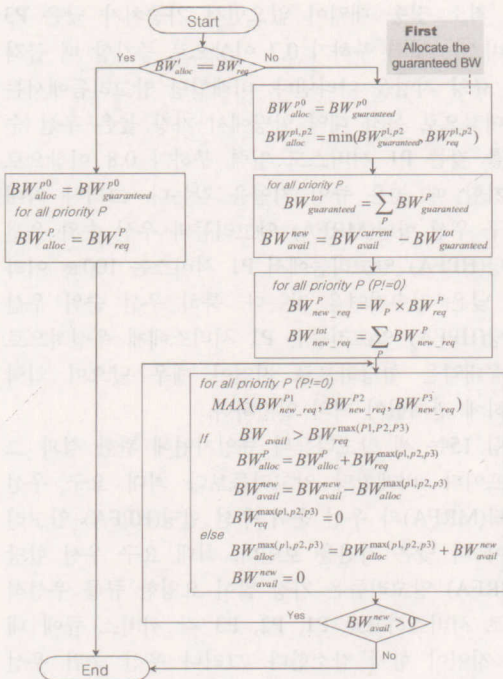 Start
First
Allocate the
guaranteed BW
Yes
BW^t_alloc == BW^t_req
No
BW^p0_alloc = BW^p0_guaranteed
BW^p1,p2_alloc = min(BW^p1,p2_guaranteed, BW^p1,p2_req)
BW^p0_alloc = BW^p0_guaranteed
for all priority P
BW^P_alloc = BW^P_req
for all priority P
BW^tot_guaranteed = ∑_P BW^P_guaranteed
BW^new_avail = BW^current_avail − BW^tot_guaranteed
for all priority P (P!=0)
BW^P_new_req = W_P × BW^P_req
BW^tot_new_req = ∑_P BW^P_new_req
for all priority P (P!=0)
MAX(BW^P1_new_req, BW^P2_new_req, BW^P3_new_req)
If BW^new_avail > BW^max(P1,P2,P3)_req
BW^P_alloc = BW^P_alloc + BW^max(p1,p2,p3)_req
BW^new_avail = BW^new_avail − BW^max(p1,p2,p3)_alloc
BW^max(p1,p2,p3)_req = 0
else
BW^max(p1,p2,p3)_alloc = BW^max(p1,p2,p3)_alloc + BW^new_avail
BW^new_avail = 0
Yes
BW^new_avail > 0
No
End